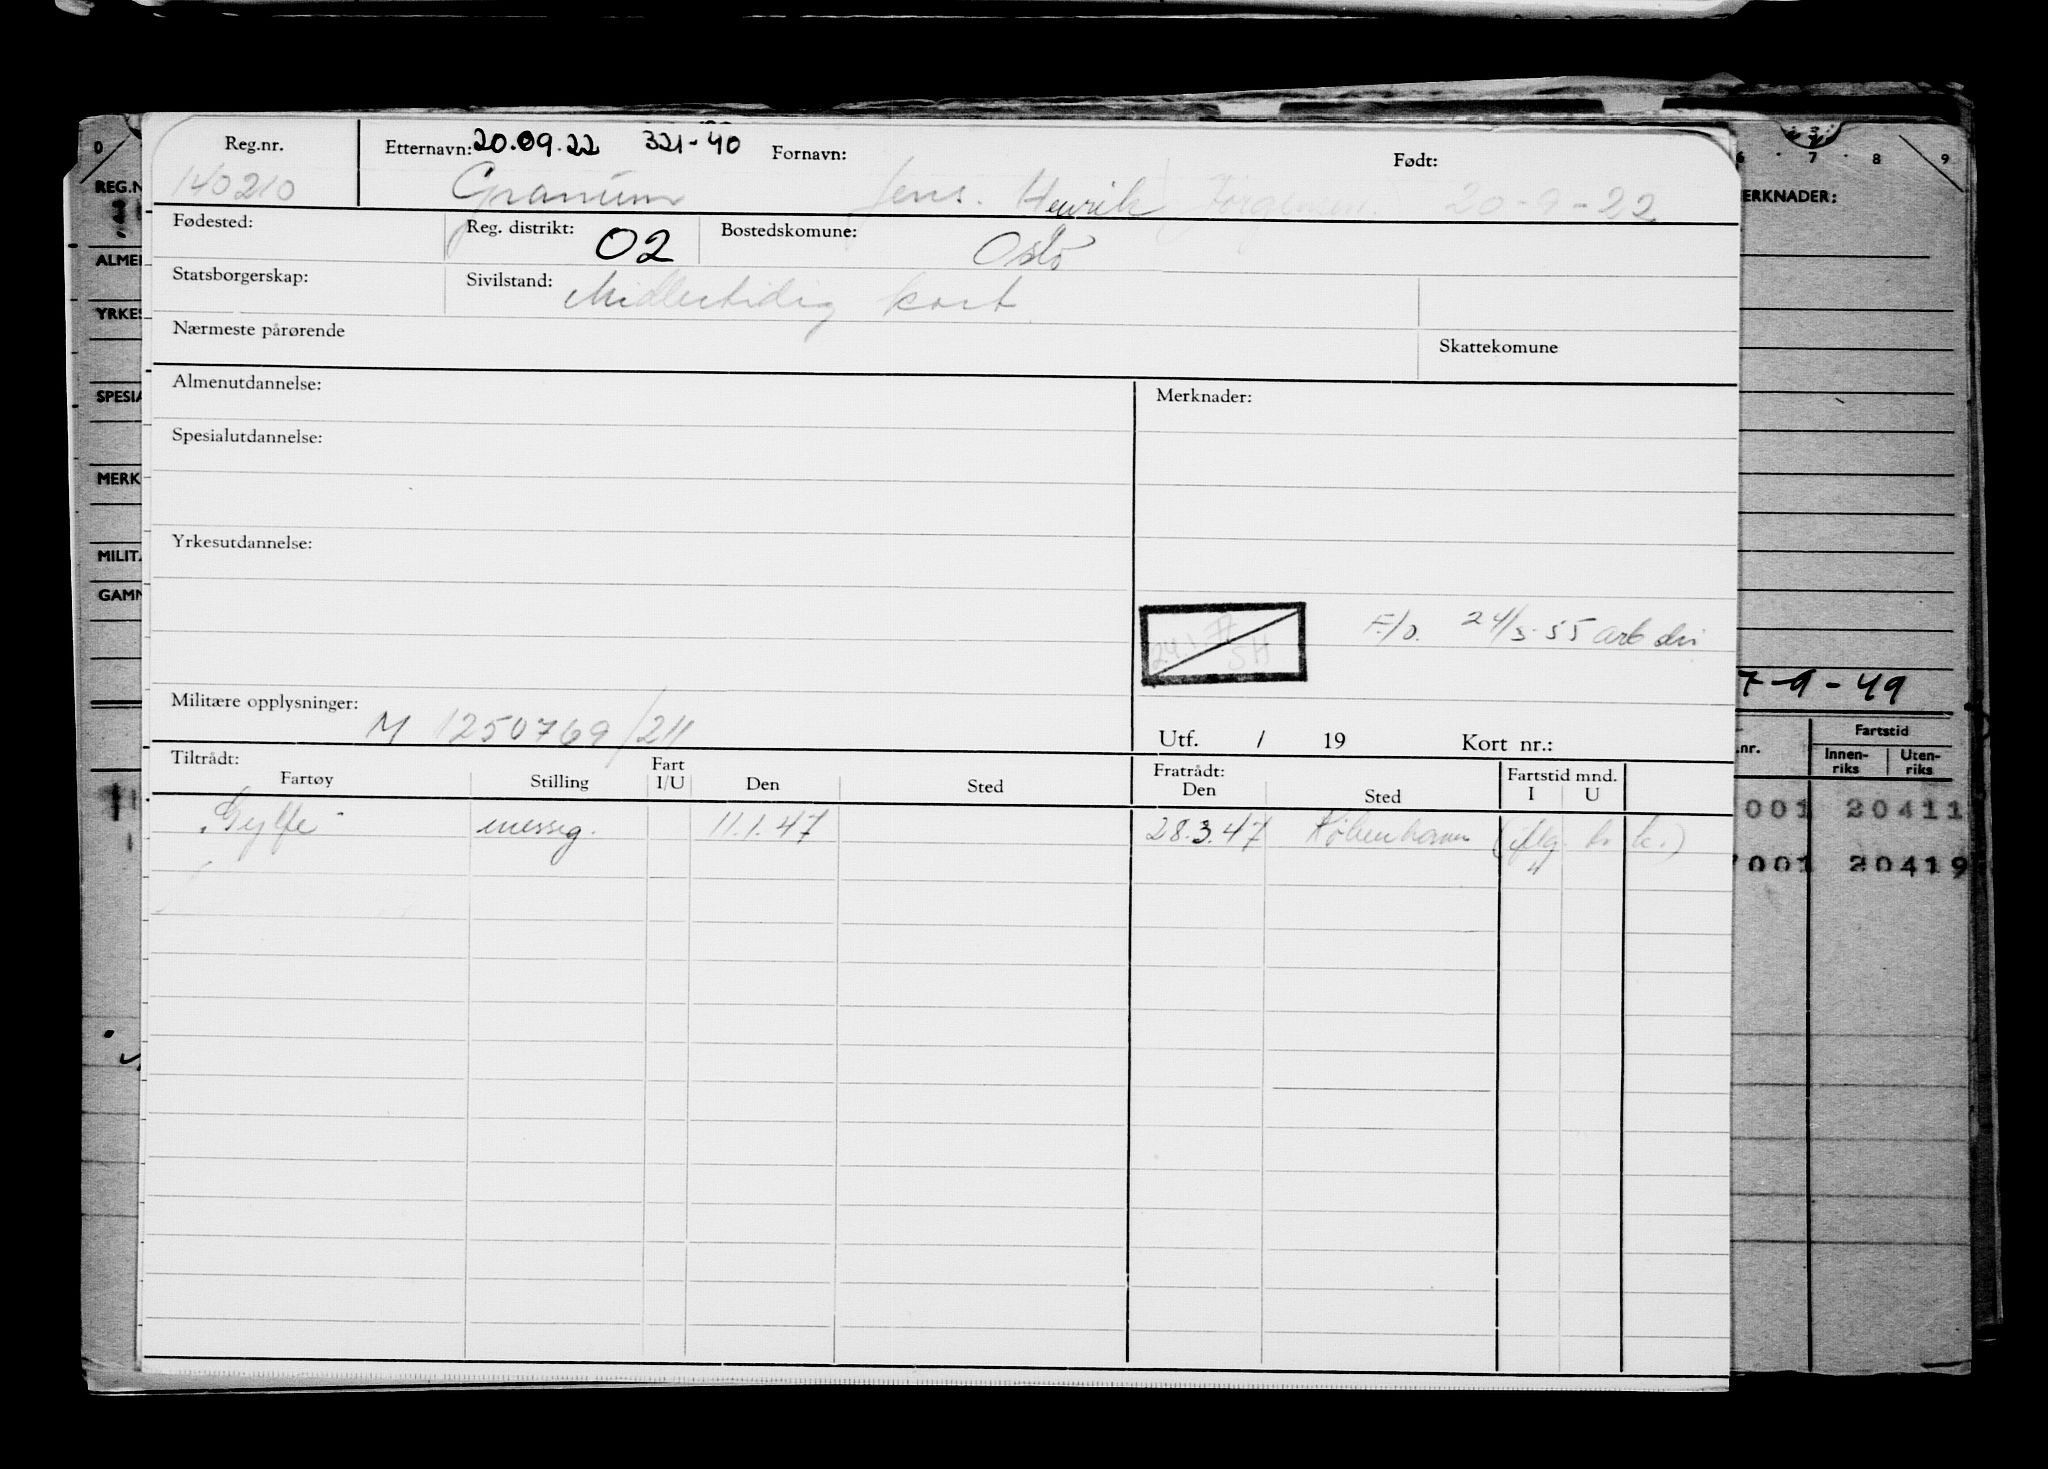 Reg.nr. Etternavn: 20.09.22 321-40 Fornavn: Født:
140210 Granum Jens. Henrik Jørgensen. 20-9-22
Fødested: Reg. distrikt: 02 Bostedskomune: Oslo
Statsborgerskap: Sivilstand: Midlertidig kort
Nærmeste pårørende Skattekomune
Almenutdannelse: Merknader:
Spesialutdannelse:
Yrkesutdannelse:
F/o. 24/3-55 arb dir
Militære opplysninger: M 1250769/211
Utf. / 19 Kort nr.:
Tiltrådt: Fartøy Stilling Fart I/U Den Sted Fratrådt: Den Sted Fartstid mnd. I U
"Gylfe" messeg. 11.1.47 28.3.47 København (iflg. hr. k.)
0
REG.N
ALMEI
YRKES
SPESIA
MERK
MILITA
GAMN
6 7 8 9
ERKNADER:
7-9-49
.nr. Fartstid
Innen-riks Uten-riks
001 20411
7001 20419